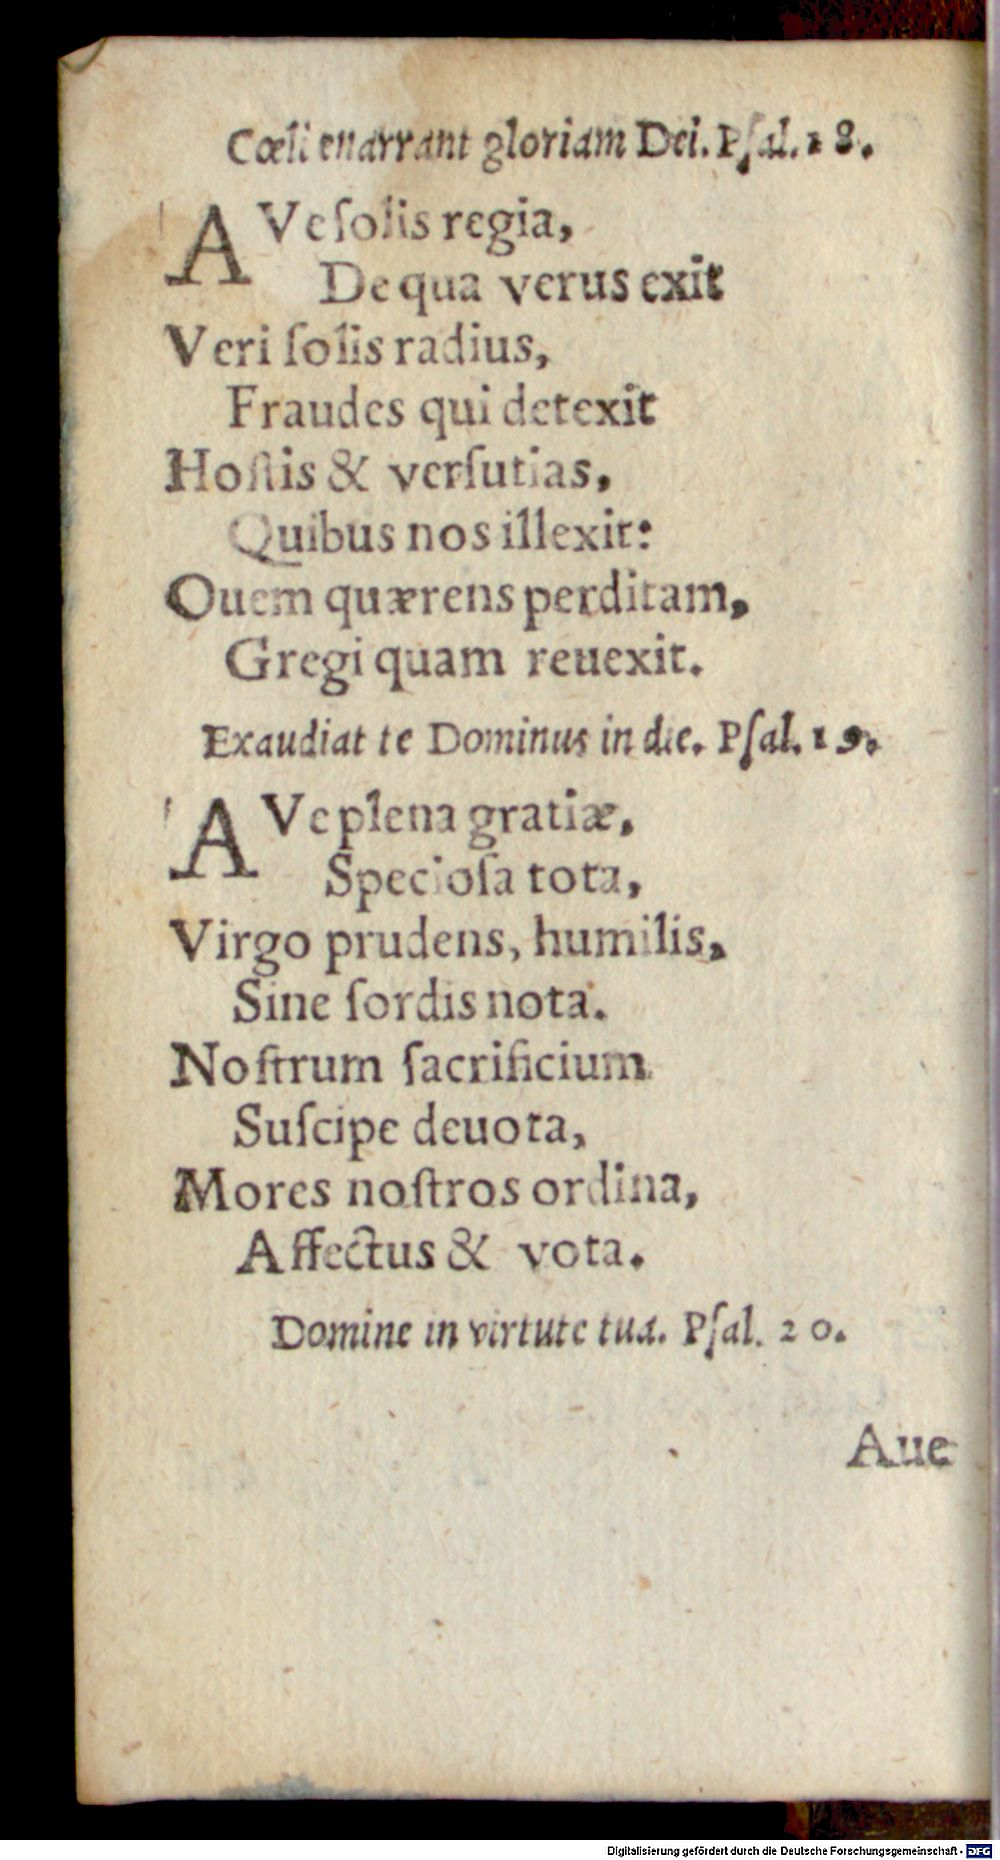 Cœli enarrant gloriam Dei. Pſal. 18.
AVe ſolis regia,
De qua verus exit
Veri ſolis radius,
Fraudes qui detexit
Hoſtis & verſutias,
Quibus nos illexit:
Ouem quærens perditam,
Gregi quam reuexit.
Exaudiat te Dominus in die. Pſal. 19.
AVe plena gratiæ,
Specioſa tota,
Virgo prudens, humilis,
Sine ſordis nota.
Noſtrum ſacrificium
Suſcipe deuota,
Mores noſtros ordina,
Affectus & vota.
Domine in virtute tua. Pſal. 20.
Aue
Digitalisierung gefördert durch die Deutsche Forschungsgemeinschaft - DFG